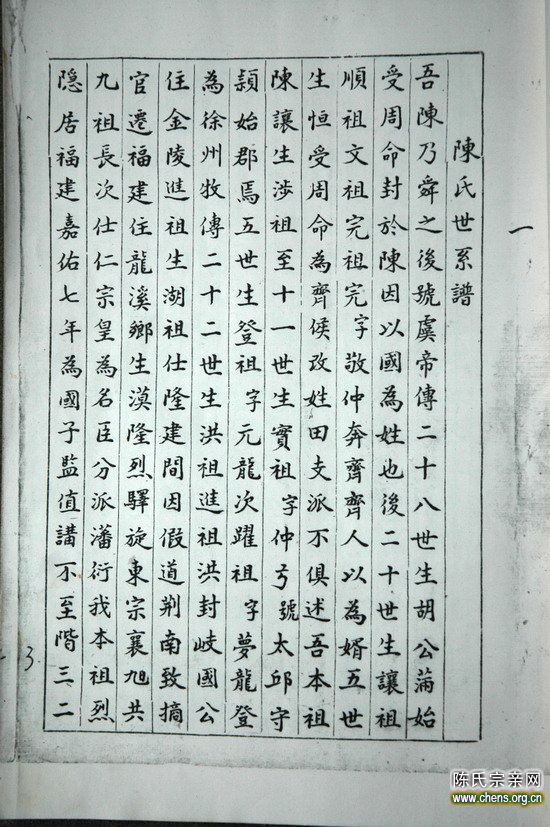 一
陳氏世系譜
吾陳乃舜之後號虞帝傳二十八世生胡公滿始
受周命封於陳因以國為姓也後二十世生讓祖
順祖文祖完祖完字敬仲奔齊齊人以為婿五世
生恒受周命為齊侯改姓田支派不俱述吾本祖
陳讓生涉祖至十一世生實祖字仲弓號太邱守
潁始郡焉五世生登祖字元龍次躍祖字夢龍登
為徐州牧傳二十二世生洪祖進祖洪封岐國公
住金陵進祖生湖祖仕隆建間因假道荆南致摘
官遷福建住龍溪鄉生漠隆烈驛旋東宗襄旭共
九祖長次仕仁宗皇為名臣分派瀋衍我本祖烈
隐居福建嘉佑七年為國子監值講不至階三二
3
陈氏宗亲网
www.chens.org.cn